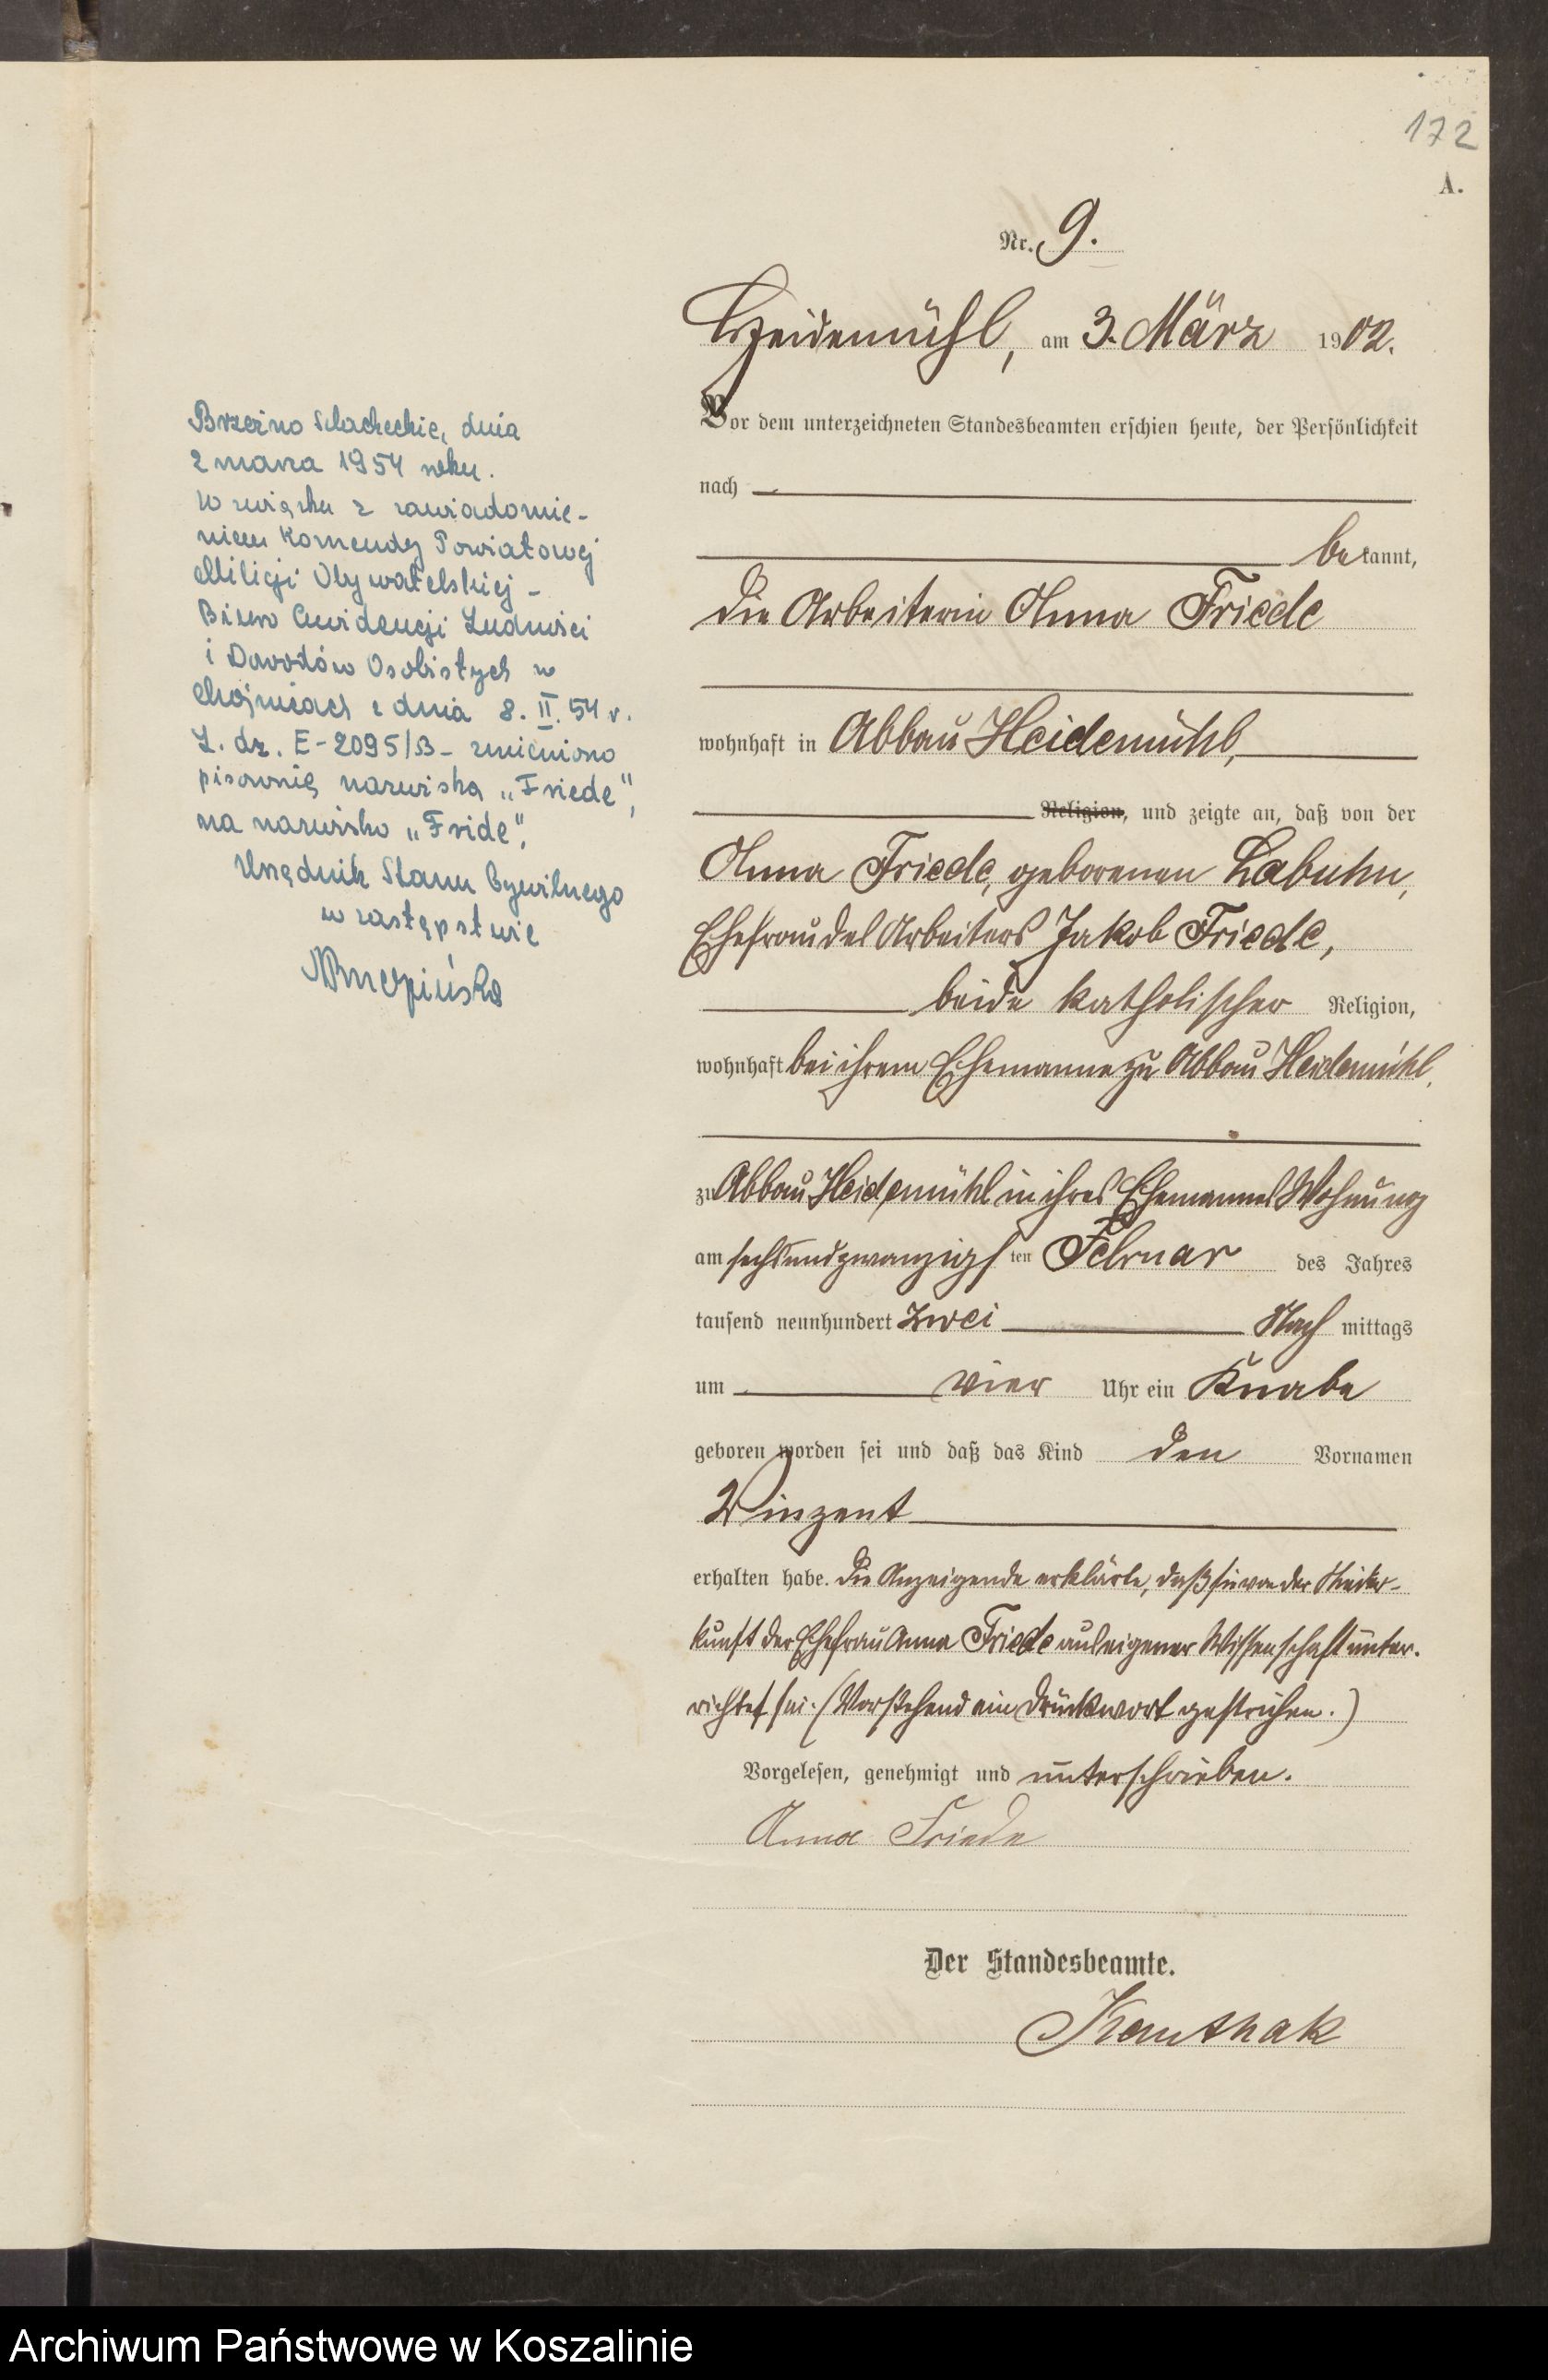 172
A.
Nr. 9.
Heidemühl, am 3. März 1902.
Vor dem unterzeichneten Standesbeamten erschien heute, der Persönlichkeit
nach
bekannt,
die Arbeiterin Anna Friede
wohnhaft in Abbau Heidemühl,
Religion, und zeigte an, daß von der
Anna Friede, geborenen Labuhn,
Ehefrau des Arbeiters Jakob Friede,
beide katholischer Religion,
wohnhaft bei ihrem Ehemanne zu Abbau Heidemühl,
zu Abbau Heidemühl in ihres Ehemannes Wohnung
am sechsundzwanzigsten Februar des Jahres
tausend neunhundert zwei Nachmittags
um vier Uhr ein Knabe
geboren worden sei und daß das Kind den Vornamen
Vinzent
erhalten habe. Die Anzeigende erklärte, daß sie von der Nieder-
kunft der Ehefrau Anna Friede aus eigener Wissenschaft unter-
richtet sei. (Vorstehend ein Druckwort gestrichen.)
Vorgelesen, genehmigt und unterschrieben.
Anna Friede
Der Standesbeamte.
Kanthak
Brzeźno Szlacheckie, dnia
2 marca 1954 roku.
W związku z zawiadomie-
niem Komendy Powiatowej
Milicji Obywatelskiej –
Biuro Ewidencji Ludności
i Dowodów Osobistych w
Chojnicach z dnia 8. II. 54 r.
L. dz. E-2095/B – zmieniono
pisownię nazwiska „Friede",
na nazwisko „Fride".
Urzędnik Stanu Cywilnego
w zastępstwie
Archiwum Państwowe w Koszalinie